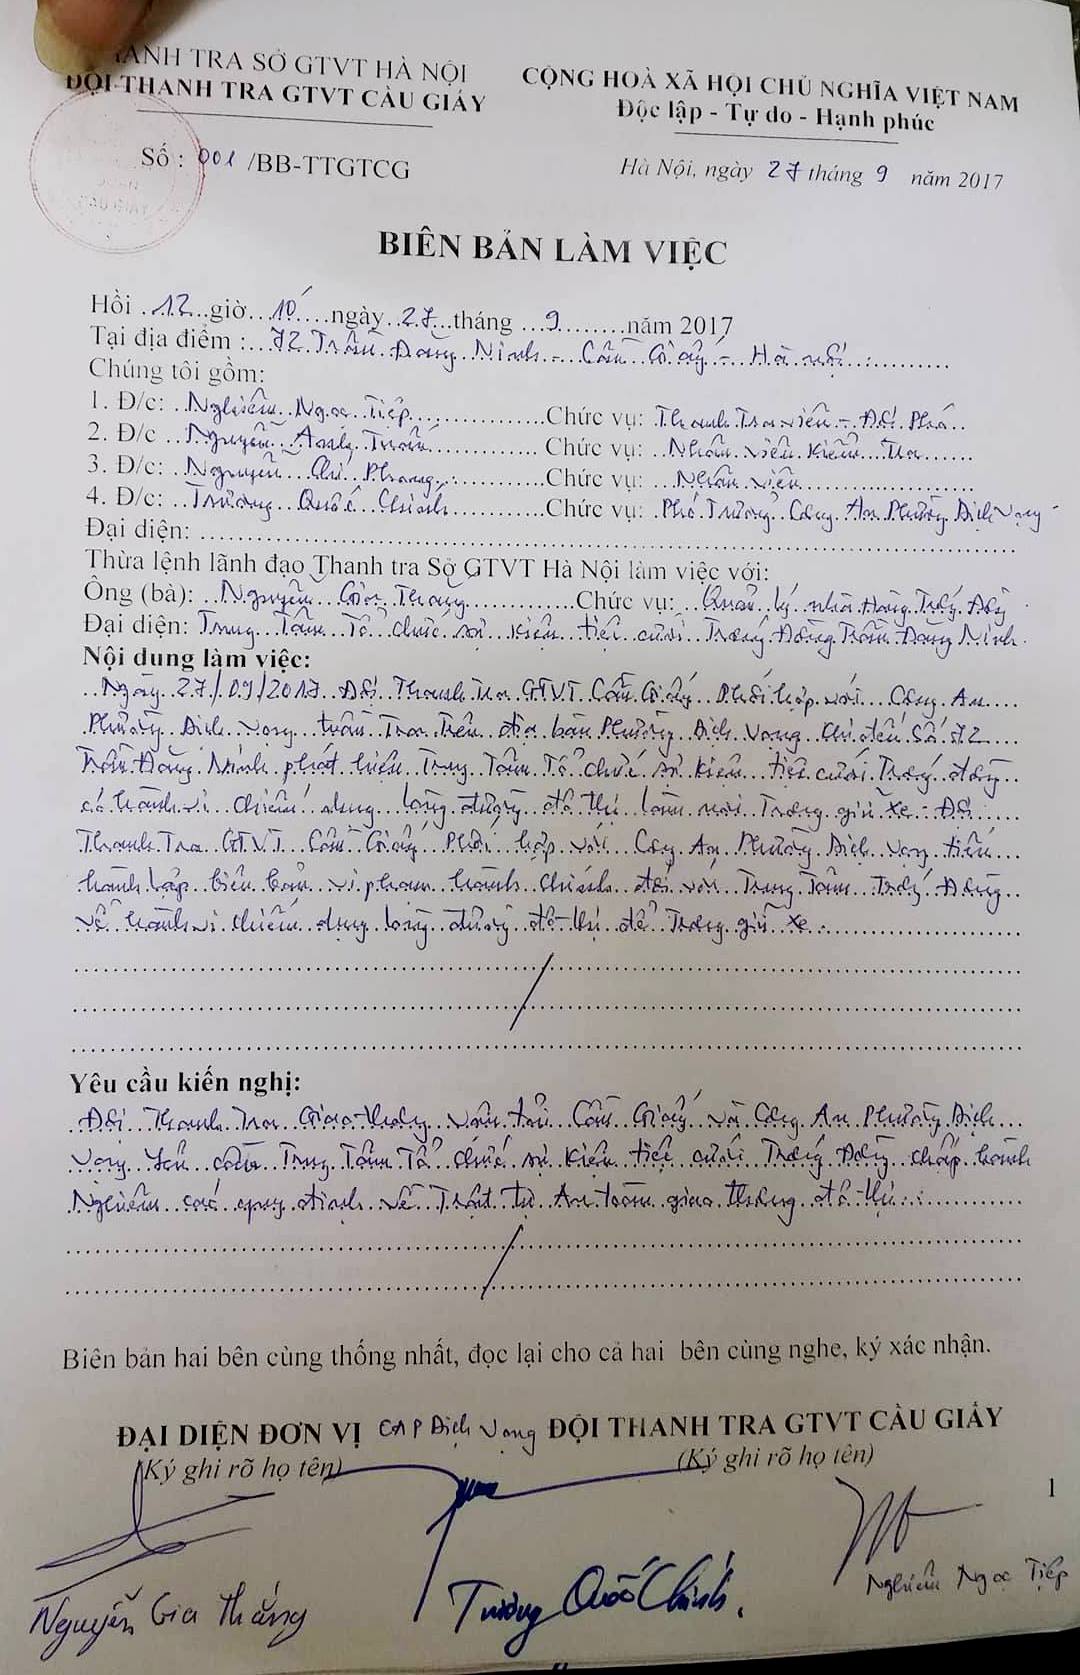 THANH TRA SỞ GTVT HÀ NỘI
ĐỘI THANH TRA GTVT CẦU GIẤY
CỘNG HOÀ XÃ HỘI CHỦ NGHĨA VIỆT NAM
Độc lập - Tự do - Hạnh phúc
Số : 001 /BB-TTGTCG
Hà Nội, ngày 27 tháng 9 năm 2017
BIÊN BẢN LÀM VIỆC
Hồi 12 giờ 10 ngày 27 tháng 9 năm 2017
Tại địa điểm : 72 Trần Đăng Ninh - Cầu Giấy - Hà nội
Chúng tôi gồm:
1. Đ/c: Nghiêm Ngọc Tiệp Chức vụ: Thanh Tra viên - Đội Phó
2. Đ/c Nguyễn Anh Tuấn Chức vụ: Nhân viên Kiểm Tra
3. Đ/c: Nguyễn Phong Chức vụ: Nhân viên
4. Đ/c: Trương Quốc Chinh Chức vụ: Phó Trưởng Công An Phường Dịch Vọng
Đại diện:
Thừa lệnh lãnh đạo Thanh tra Sở GTVT Hà Nội làm việc với:
Ông (bà): Nguyễn Gia Thắng Chức vụ: Quản lý nhà Hàng Trống Đồng
Đại diện: Trung Tâm Tổ chức sự kiện tiệc cưới Trống Đồng Trần Đăng Ninh
Nội dung làm việc:
Ngày 27/09/2017 Đội Thanh tra GTVT Cầu Giấy Phối hợp với Công An
Phường Dịch Vọng tuần Tra Trên địa bàn Phường Dịch Vọng Khi đến Số 72
Trần Đăng Ninh phát hiện Trung Tâm Tổ chức sự kiện tiệc cưới Trống đồng
có hành vi chiếm dụng lòng đường đô thị làm nơi Trông giữ xe. Đội
Thanh Tra GTVT Cầu Giấy Phối hợp với Công An Phường Dịch Vọng tiến
hành lập biên bản vi phạm hành chính đối với Trung Tâm Trống Đồng
về hành vi chiếm dụng lòng đường đô thị để Trông giữ xe.
Yêu cầu kiến nghị:
Đội Thanh tra Giao thông vận tải Cầu Giấy và Công An Phường Dịch
Vọng yêu cầu Trung Tâm Tổ chức sự kiện tiệc cưới Trống Đồng chấp hành
Nghiêm các quy định về Trật tự An toàn giao thông đô thị.
Biên bản hai bên cùng thống nhất, đọc lại cho cả hai bên cùng nghe, ký xác nhận.
ĐẠI DIỆN ĐƠN VỊ CAP Dịch Vọng ĐỘI THANH TRA GTVT CẦU GIẤY
(Ký ghi rõ họ tên) (Ký ghi rõ họ tên)
1
Nguyễn Gia Thắng Trương Quốc Chinh. Nghiêm Ngọc Tiệp